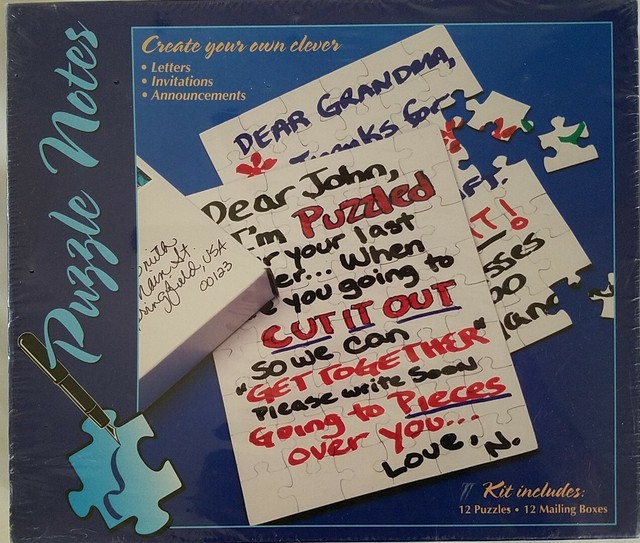 Puzzle Notes
Create your own clever
• Letters
• Invitations
• Announcements
DEAR GRANDMA,
Thanks for
Dear John,
I'm Puzzled
your last
When
you going to
CUT IT OUT
So we can
"GET TOGETHER"
Please write Soon
Going to Pieces
over you...
Love, N.
Main St.
USA
00123
Kit includes:
12 Puzzles • 12 Mailing Boxes